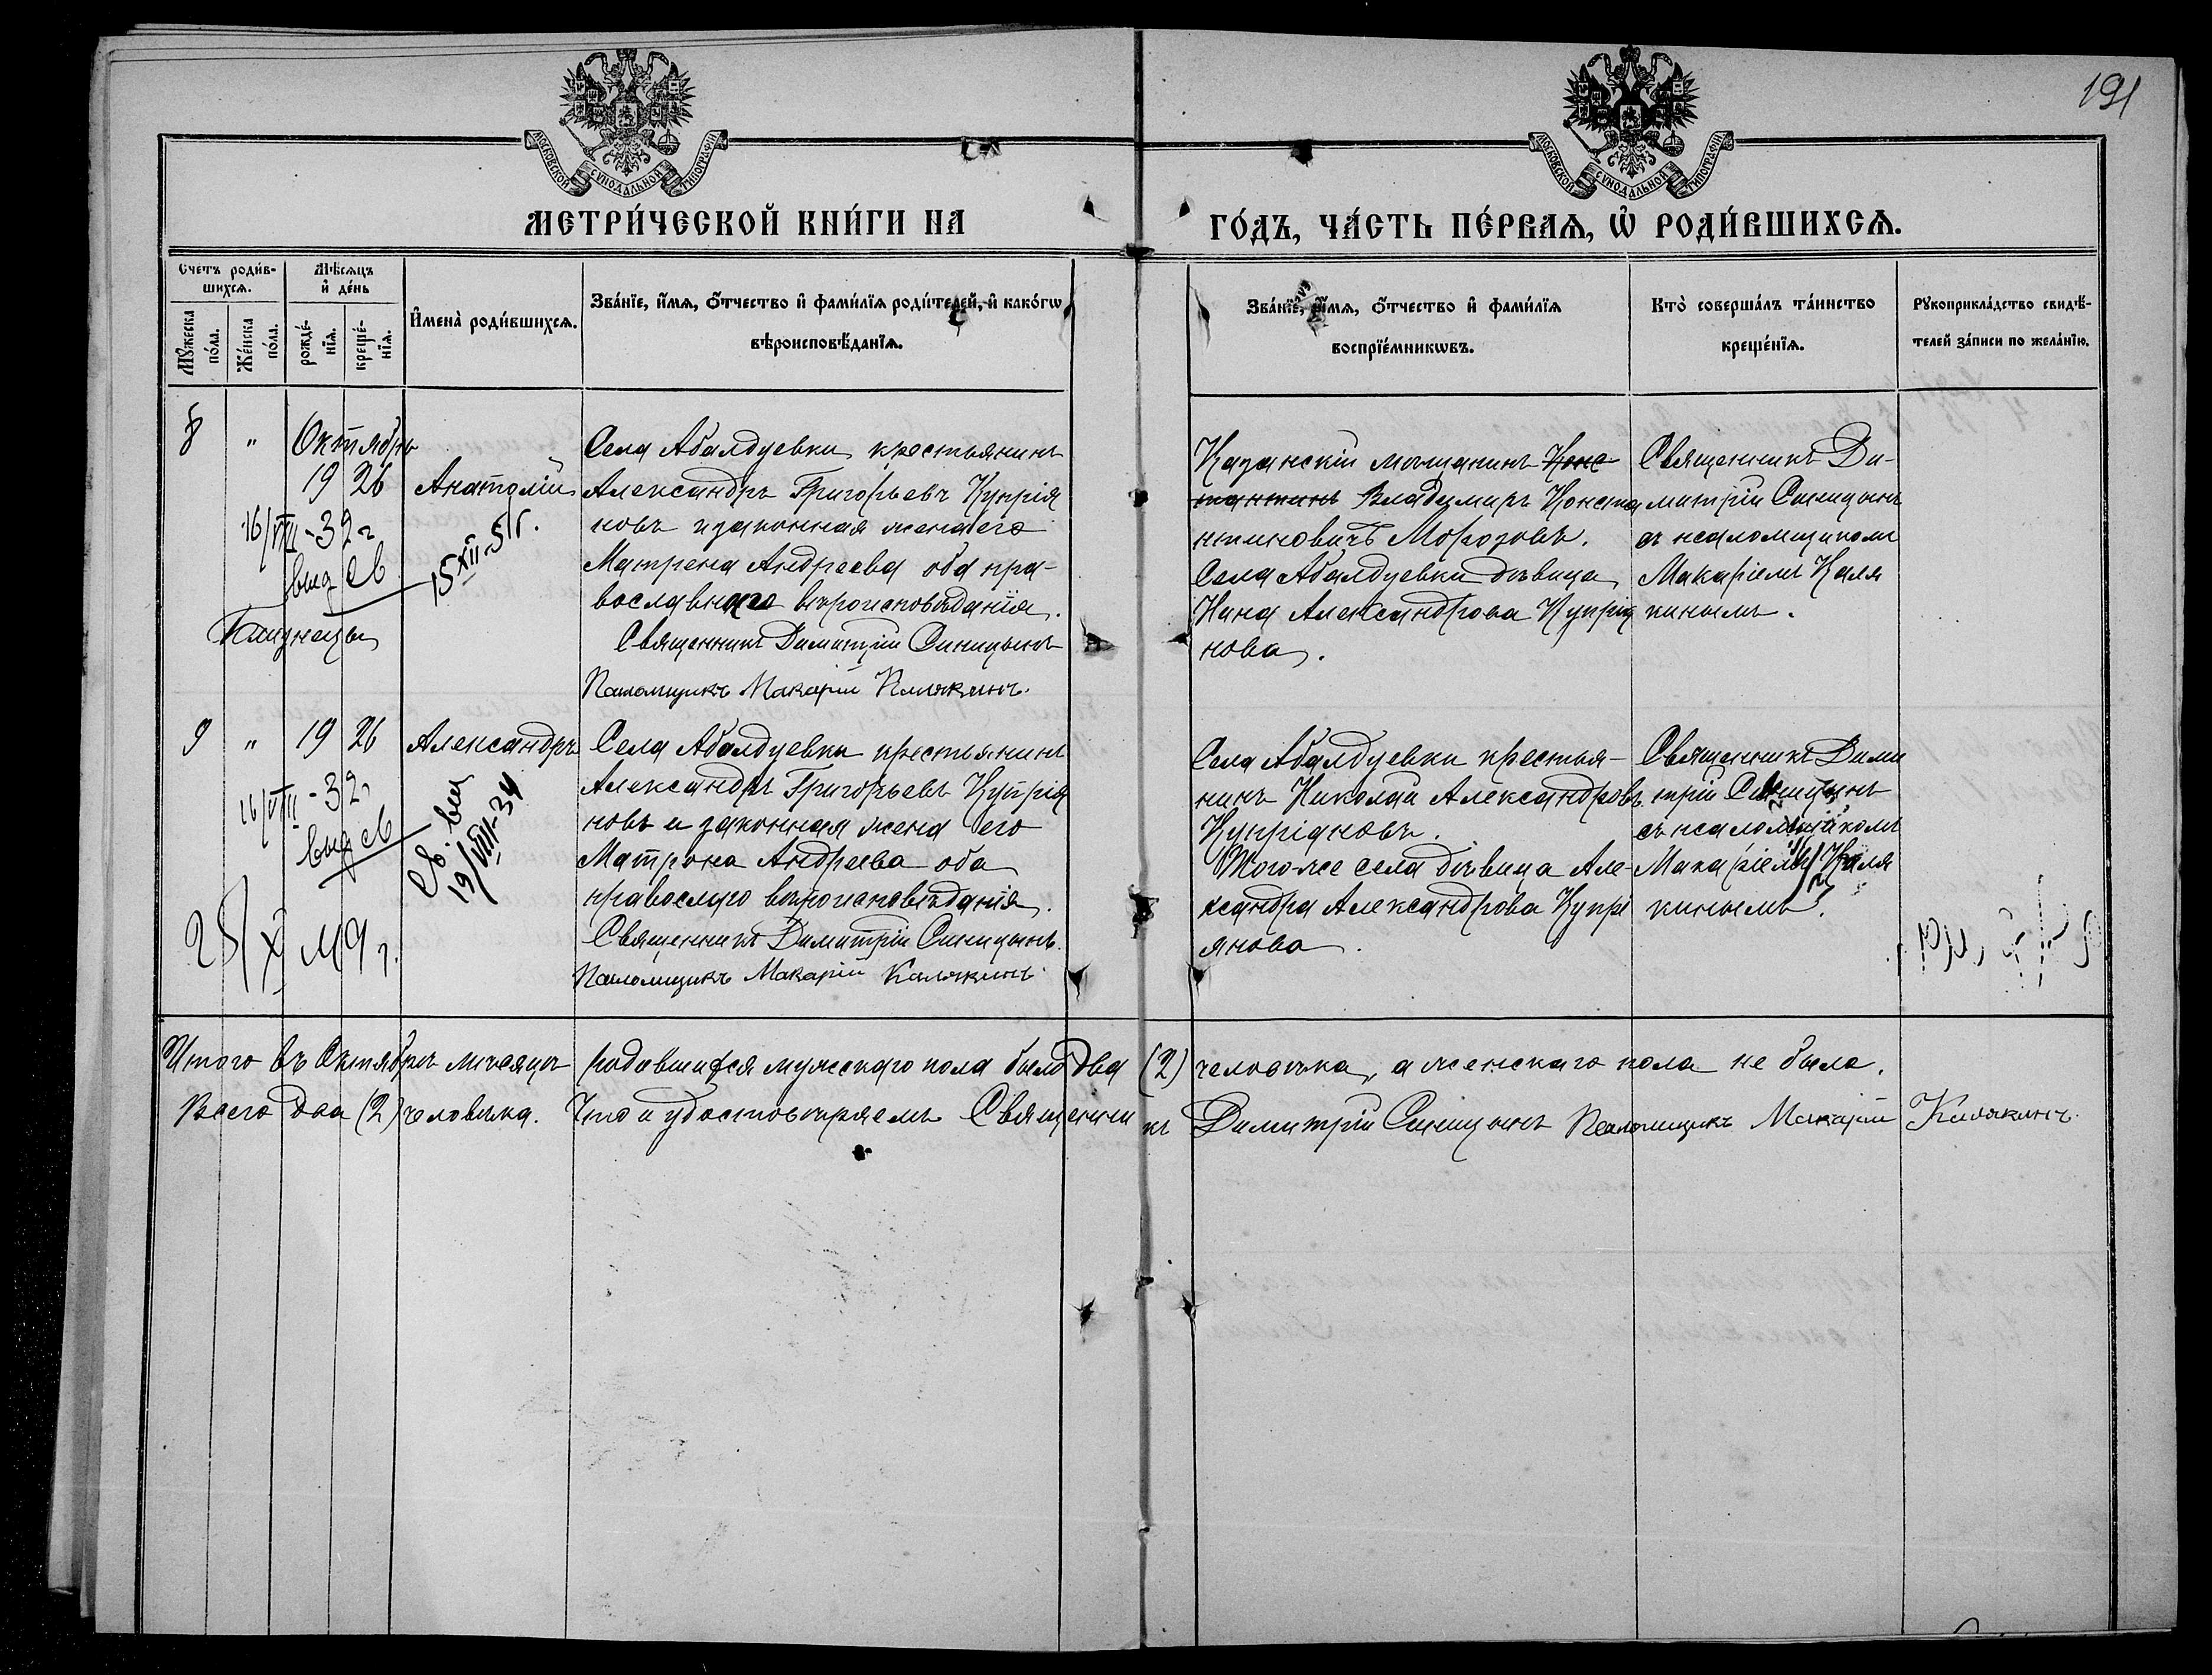 191
МОСКОВСКОЙ СѴНОДАЛЬНОЙ ТИПОГРАФІИ
МОСКОВСКОЙ СѴНОДАЛЬНОЙ ТИПОГРАФІИ
МЕТРИ́ЧЕСКОЙ КНИ́ГИ НА
ГО́ДЪ, ЧА́СТЬ ПЕ́РВАѦ, Ѽ РОДИ́ВШИХСѦ.
Счетъ роди́в-
шихсѧ.
Мѣсѧцъ
и҆ де́нь
Мꙋжеска
по́ла.
Же́нска
по́ла.
рожде́-
нїѧ.
креще́-
нїѧ.
И҆мена̀ роди́вшихсѧ.
Зва́нїе, и҆́мѧ, ѻ҆́тчество и҆ фами́лїѧ роди́телей, и҆ како́гѡ
вѣроисповѣ́данїѧ.
Зва́нїе, и҆́мѧ, ѻ҆́тчество и҆ фами́лїѧ
воспрїе́мникѡвъ.
Кто̀ соверша́лъ та́инство
креще́нїѧ.
Рꙋкоприкла́дство свидѣ́-
телей за́писи по жела́нїю.
8 " Октябрь
19 26 Анатолій
16/VIII-32 г
выд св
15 XII-51г.
Села Абалдуевки крестьянинъ
Александръ Григорьевъ Купрія
новъ и законная жена его
Матрена Андреева оба пра-
вославнаго вѣроисповѣданія.
Священникъ Димитрій Синицынъ
Псаломщикъ Макарій Калякинъ.
Казанскій мѣщанинъ Конс
тантинъ Владимиръ Конста
нтиновичъ Морозовъ.
Села Абалдуевки дѣвица
Нина Александрова Купрія
нова.
Священникъ Ди-
митрій Синицынъ
съ псаломщикомъ
Макаріемъ Каля
кинымъ.
9 " 19 26 Александръ
16/VIII-32 г
выд св
св. выд
19/VIII-34
25/X М9 г.
Села Абалдуевки крестьянинъ
Александръ Григорьевъ Купрія
новъ и законная жена его
Матрона Андреева оба
православ​го вѣроисповѣданія.
Священникъ Димитрій Синицынъ.
Псаломщикъ Макарій Калякинъ.
Села Абалдуевки крестья-
нинъ Николай Александровъ
Купріановъ.
Того-же села дѣвица Але-
ксандра Александрова Купрі
янова.
Священникъ Дими
трій Синицынъ
съ псаломщикомъ
Макаріемъ Каля
кинымъ.
Итого въ Октябрѣ мѣсяцѣ родившихся мужскаго пола было два (2) человѣка, а женскаго пола не было.
Всего два (2) человѣка. Что и удостовѣряемъ Священникъ Димитрій Синицынъ Псаломщикъ Макарій Калякинъ.